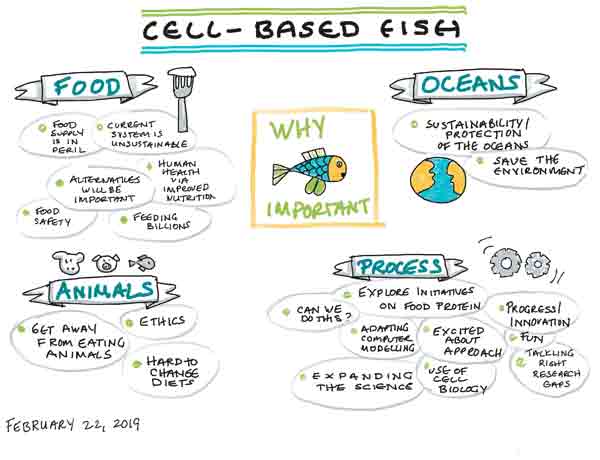 CELL-BASED FISH
FOOD
FOOD
SUPPLY
IS IN
PERIL
CURRENT
SYSTEM IS
UNSUSTAINABLE
ALTERNATIVES
WILL BE
IMPORTANT
HUMAN
HEALTH
VIA
IMPROVED
NUTRITION
FOOD
SAFETY
FEEDING
BILLIONS
WHY
IMPORTANT
OCEANS
SUSTAINABILITY/
PROTECTION
OF THE OCEANS
SAVE THE
ENVIRONMENT
ANIMALS
GET AWAY
FROM EATING
ANIMALS
ETHICS
HARD TO
CHANGE
DIETS
PROCESS
CAN WE
DO THIS?
EXPLORE INITIATIVES
ON FOOD PROTEIN
PROGRESS/
INNOVATION
ADAPTING
COMPUTER
MODELLING
EXCITED
ABOUT
APPROACH
FUN
EXPANDING
THE SCIENCE
USE OF
CELL
BIOLOGY
TACKLING
RIGHT
RESEARCH
GAPS
FEBRUARY 22, 2019